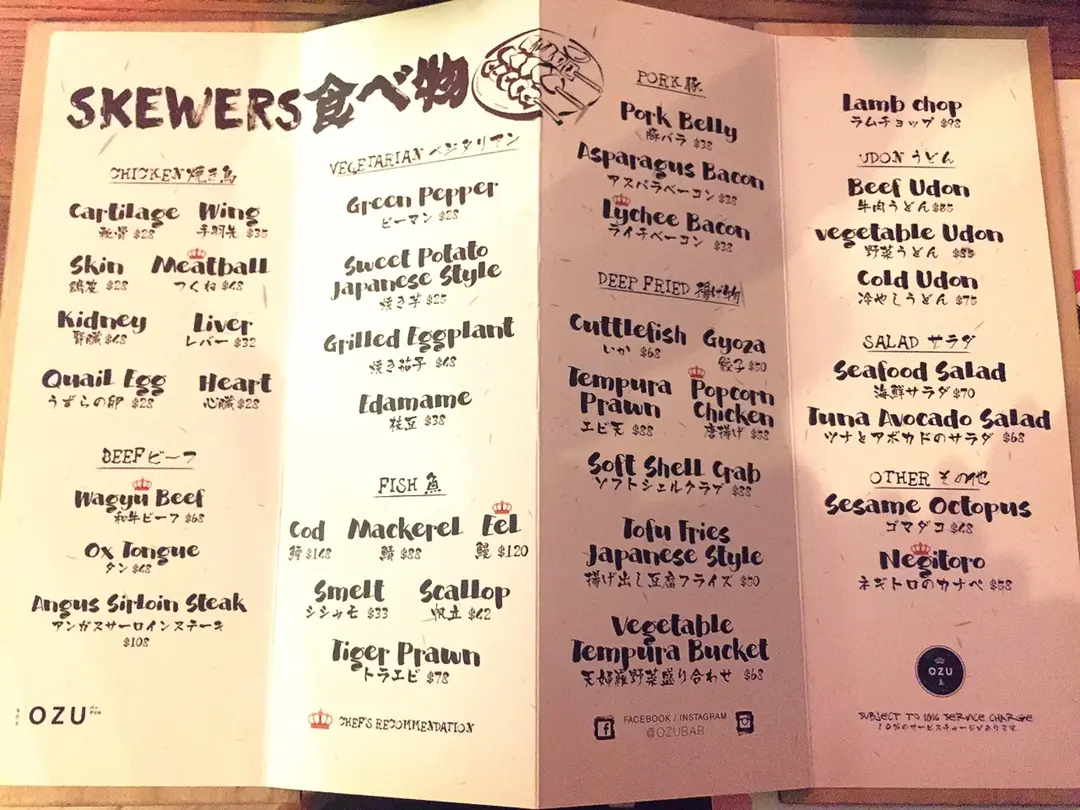 SKEWERS食べ物
CHICKEN 焼き鳥
Cartilage Wing
軟骨 $28 手羽先 $35
Skin Meatball
鶏皮 $28 つくね $48
Kidney Liver
腎臓 $48 レバー $32
Quail Egg Heart
うずらの卵 $28 心臓 $28
BEEF ビーフ
Wagyu Beef
和牛ビーフ $68
Ox Tongue
タン $48
Angus Sirloin Steak
アンガスサーロインステーキ
$108
OZU
VEGETARIAN ベジタリアン
Green Pepper
ピーマン $28
Sweet Potato
Japanese Style
焼き芋 $25
Grilled Eggplant
焼き茄子 $48
Edamame
枝豆 $38
FISH 魚
Cod Mackerel Eel
鱈 $148 鯖 $88 鰻 $120
Smelt Scallop
シシャモ $33 帆立 $42
Tiger Prawn
トラエビ $78
CHEF'S RECOMMENDATION
PORK 豚
Pork Belly
豚バラ $38
Asparagus Bacon
アスパラベーコン $38
Lychee Bacon
ライチベーコン $38
DEEP FRIED 揚げ物
Cuttlefish Gyoza
いか $68 餃子 $50
Tempura Popcorn
Prawn Chicken
エビ天 $88 唐揚げ $58
Soft Shell Crab
ソフトシェルクラブ $88
Tofu Fries
Japanese Style
揚げ出し豆腐フライズ $50
Vegetable
Tempura Bucket
天婦羅野菜盛り合わせ $68
FACEBOOK / INSTAGRAM
@OZUBAR
Lamb chop
ラムチョップ $98
UDON うどん
Beef Udon
牛肉うどん $85
vegetable Udon
野菜うどん
Cold Udon
冷やしうどん $75
SALAD サラダ
Seafood Salad
海鮮サラダ $70
Tuna Avocado Salad
ツナとアボカドのサラダ $68
OTHER その他
Sesame Octopus
ゴマダコ $48
Negitoro
ネギトロのカナペ $58
OZU
SUBJECT TO 10% SERVICE CHARGE
10%のサービスチャージがあります